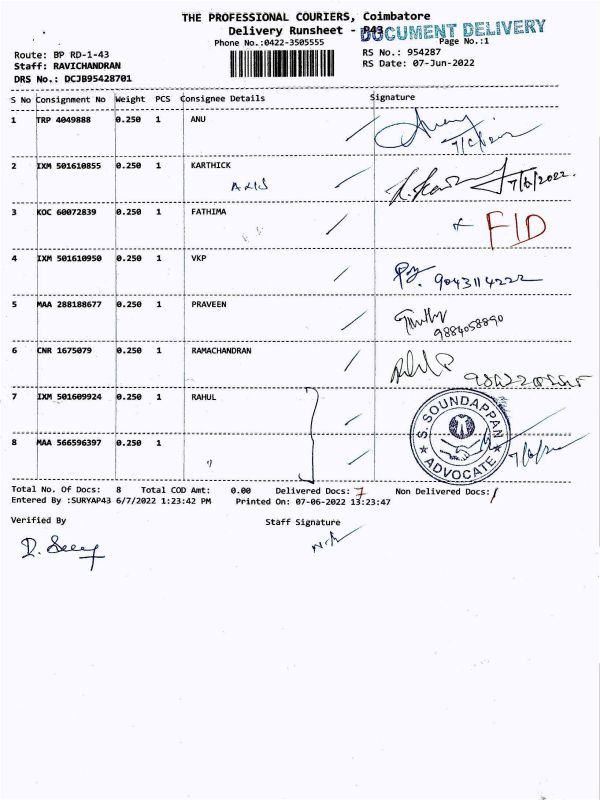 THE PROFESSIONAL COURIERS, Coimbatore
Delivery Runsheet - P43
DOCUMENT DELIVERY
Phone No.:0422-3505555
Page No.:1
Route: BP RD-1-43
RS No.: 954287
Staff: RAVICHANDRAN
RS Date: 07-Jun-2022
DRS No.: DCJB95428701
S No Consignment No Weight PCS Consignee Details Signature
1 TRP 4049888 0.250 1 ANU
2 IXM 501610855 0.250 1 KARTHICK
AXIS 7/6/2022.
3 KOC 60072839 0.250 1 FATHIMA FID
4 IXM 501610950 0.250 1 VKP
9043114222
5 MAA 288188677 0.250 1 PRAVEEN
9884058890
6 CNR 1675079 0.250 1 RAMACHANDRAN
7 IXM 501609924 0.250 1 RAHUL
S. SOUNDAPPAN
ADVOCATE
8 MAA 566596397 0.250 1
"
Total No. Of Docs: 8 Total COD Amt: 0.00 Delivered Docs: 7 Non Delivered Docs: 1
Entered By :SURYAP43 6/7/2022 1:23:42 PM Printed On: 07-06-2022 13:23:47
Verified By Staff Signature